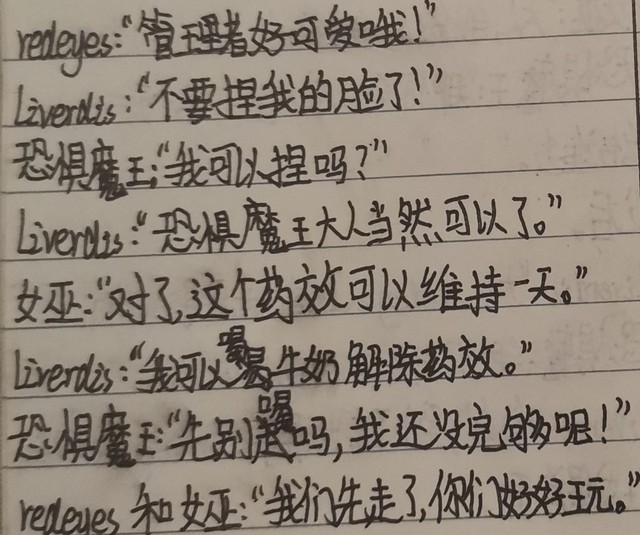 redeyes:“管理者好可爱哦!”
Liverdis:“不要捏我的脸了!”
恐惧魔王:“我可以捏吗?”
Liverdis:“恐惧魔王大人当然可以了。”
女巫:“对了,这个药效可以维持一天。”
Liverdis:“我可以喝牛奶解除药效。”
恐惧魔王:“先别喝吗,我还没完够呢!”
redeyes 和女巫:“我们先走了,你们好好玩。”